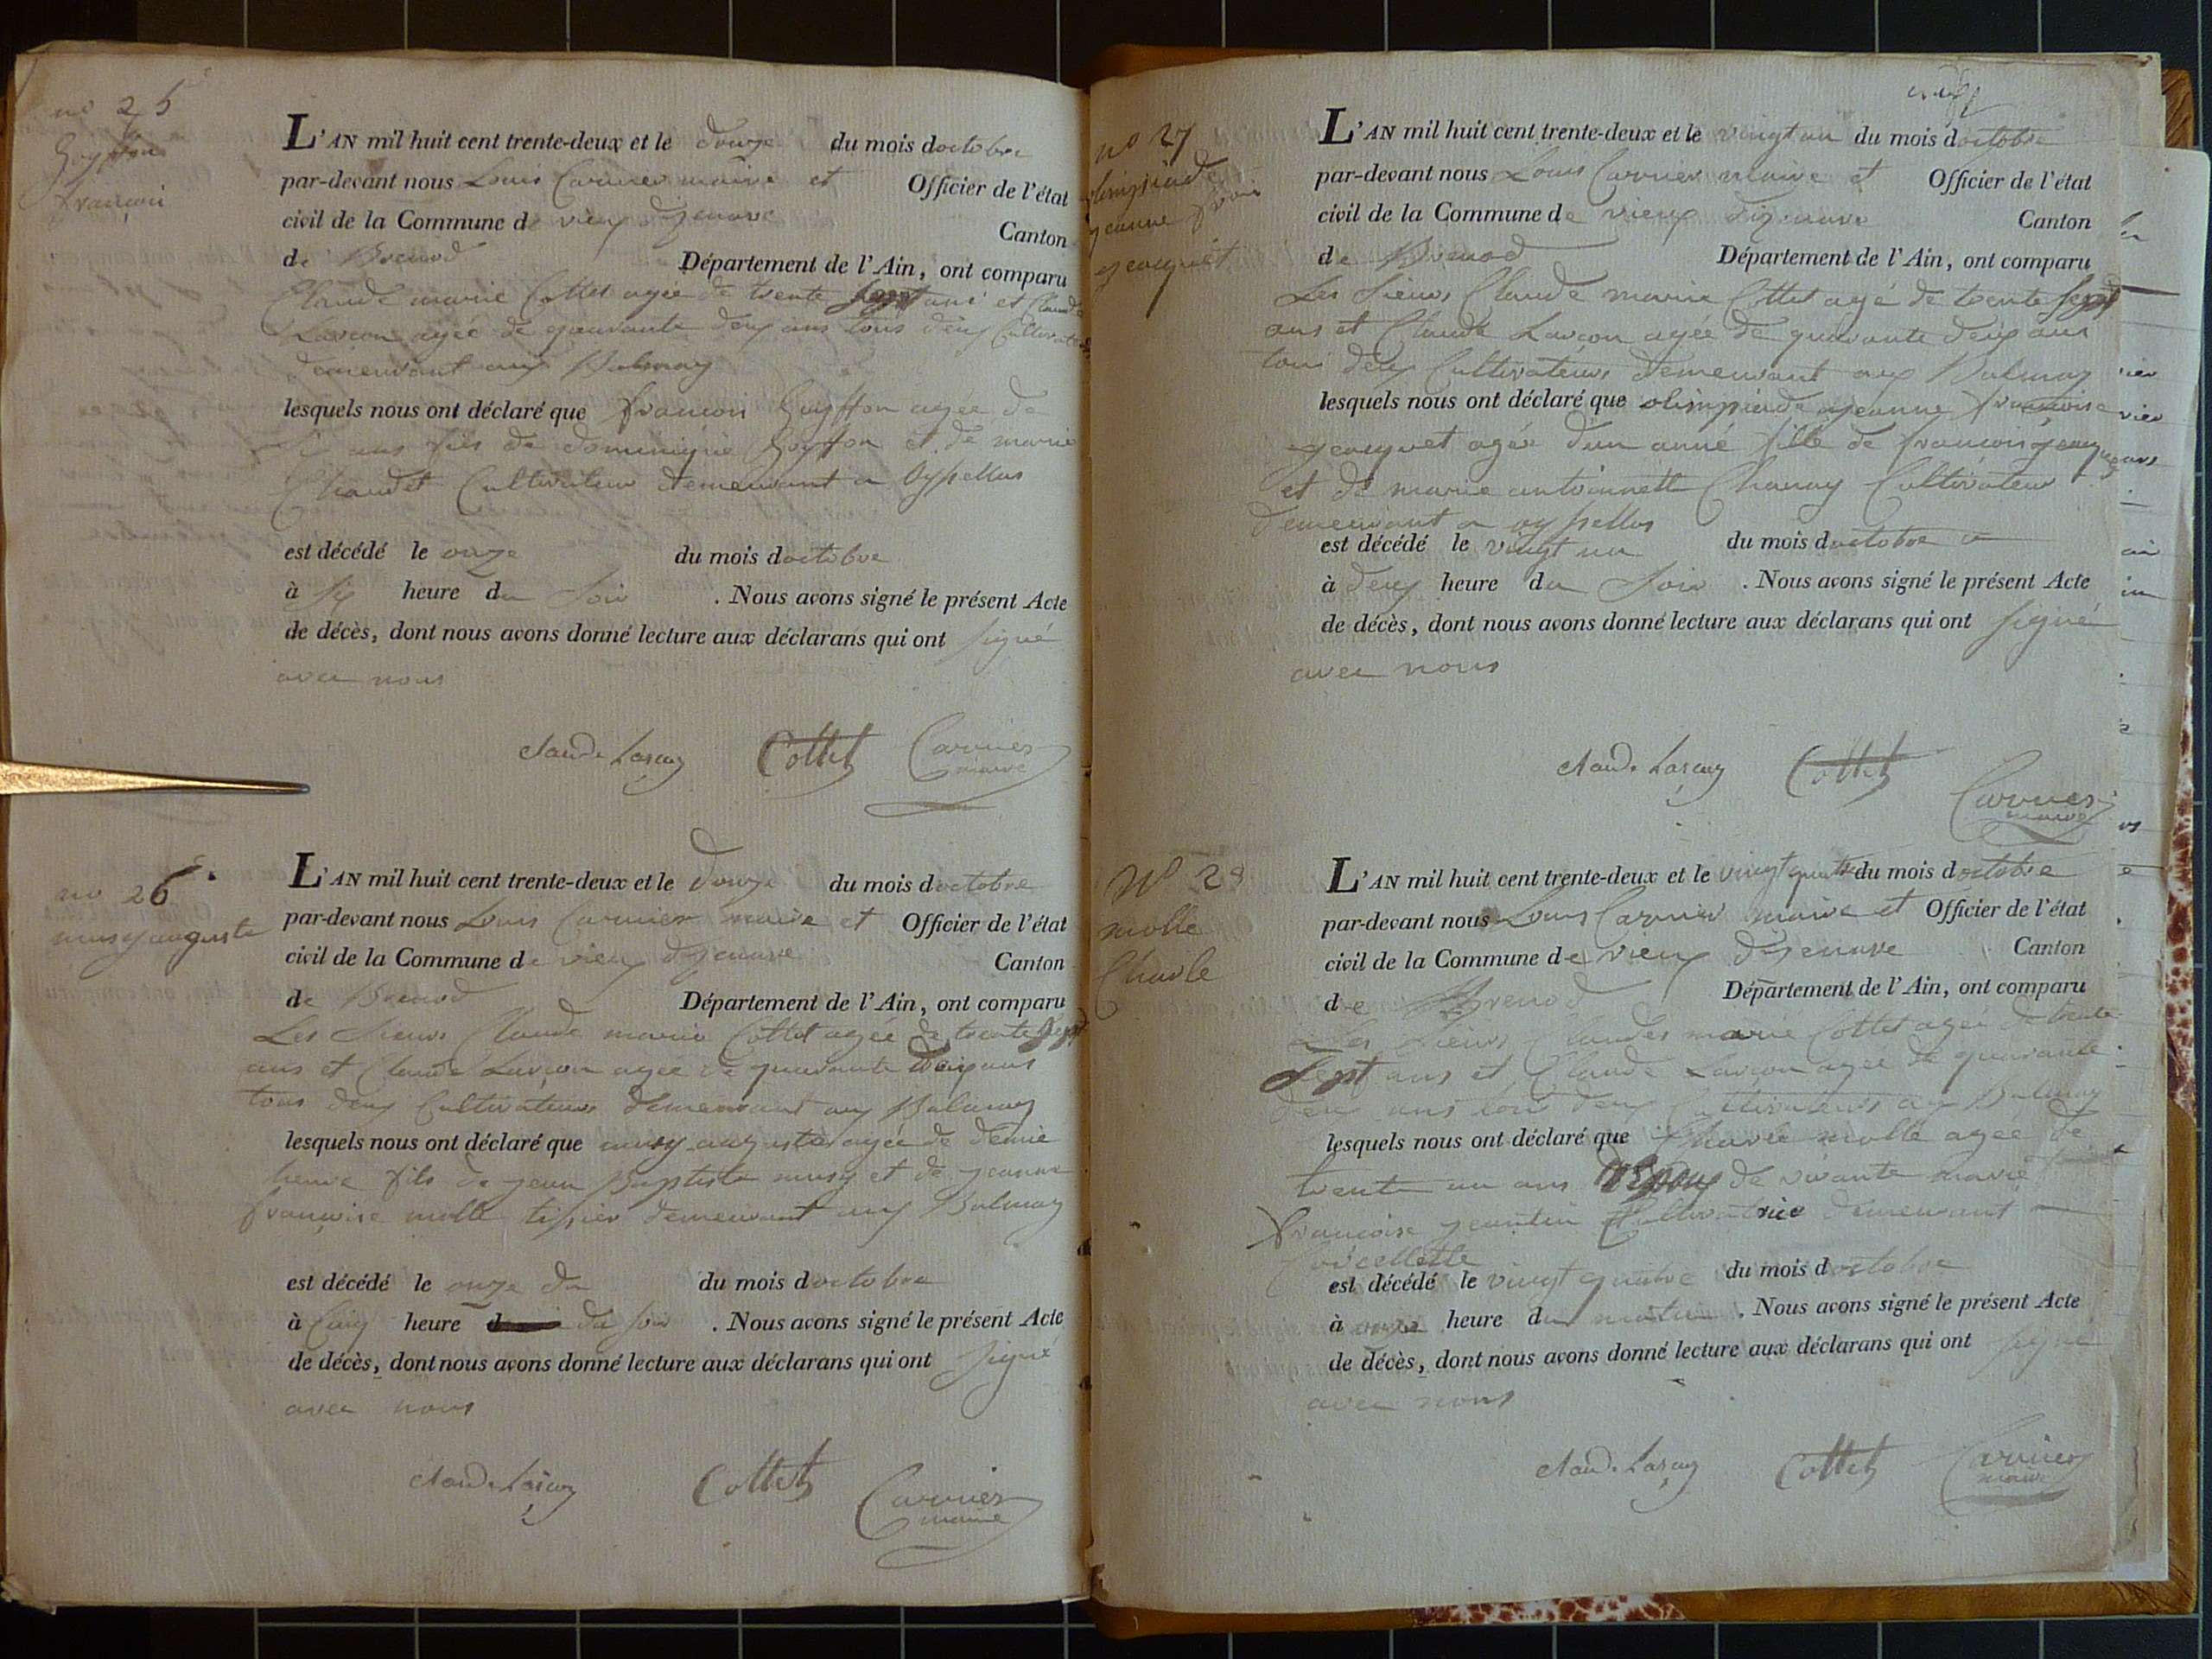 no 25
Goyffon
françoi
L'AN mil huit cent trente-deux et le douze du mois doctobre
par-devant nous Louis Carrier maire et Officier de l'état
civil de la Commune de vieu dizenave Canton
de Brenod Département de l'Ain, ont comparu
Claude marie Cottet agée de trente sept ans et Claude
Larçon agée de quarante deux ans tous deux Cultivateurs
demeurant aux Balmay
lesquels nous ont déclaré que françois Goyffon agée de
ans fils de dominique Goyffon et de marie
Chaudet Cultivateur demeurant a oyssellas
est décédé le onze du mois doctobre
à six heure du soir . Nous avons signé le présent Acte
de décès, dont nous avons donné lecture aux déclarans qui ont signé
avec nous
claude Larçon Cottet Carrier
maire
no 26
musy auguste
L'AN mil huit cent trente-deux et le douze du mois doctobre
par-devant nous Louis Carrier maire et Officier de l'état
civil de la Commune de vieux dizenave Canton
de Brenod Département de l'Ain, ont comparu
Les sieurs Claude marie Cottet agée de trente sept
ans et Claude Larçon agée de quarante deux ans
tous deux Cultivateurs demeurant aux Balmay
lesquels nous ont déclaré que musy auguste agée de demie
heure fils de jean Baptiste musy et de jeanne
françoise molle tissier demeurant aux Balmay
est décédé le onze du du mois doctobre
à Cinq heure du soir . Nous avons signé le présent Acte
de décès, dont nous avons donné lecture aux déclarans qui ont signé
avec nous
claude Larçon Cottet Carrier
maire
no 27
olimpiade
jeanne fran
jacquet
L'AN mil huit cent trente-deux et le vingt un du mois doctobre
par-devant nous Louis Carrier maire et Officier de l'état
civil de la Commune de vieux dizenave Canton
de Brenod Département de l'Ain, ont comparu
Les sieurs Claude marie Cottet agé de trente sept
ans et Claude Larçon agée de quarante deux ans
tous deux Cultivateurs demeurant aux Balmay
lesquels nous ont déclaré que olimpiade jeanne françoise
jacquet agée d'un anné fille de françois jacquet
et de marie antoinnette Chanay Cultivateur
demeurant a oyssellas
est décédé le vingt un du mois doctobre
à deux heure du soir . Nous avons signé le présent Acte
de décès, dont nous avons donné lecture aux déclarans qui ont signé
avec nous
claude Larçon Cottet
Carrier
maire
No 28
molle
Charle
L'AN mil huit cent trente-deux et le vingt quatre du mois doctobre
par-devant nous Louis Carrier maire et Officier de l'état
civil de la Commune de vieux dizenave Canton
de Brenod Département de l'Ain, ont comparu
Les sieurs Claudes marie Cottet agée de trente
sept ans et Claude Larçon agée de quarante
deux ans tous deux Cultivateurs aux Balmay
lesquels nous ont déclaré que Charle molle agée de
trente un ans Epoux de vivante marie
françoise jeantin Cultivatrice demeurant
Corcellette
est décédé le vingt quatre du mois doctobre
à onze heure du matin . Nous avons signé le présent Acte
de décès, dont nous avons donné lecture aux déclarans qui ont signé
avec nous
claude Larçon Cottet Carrier
maire